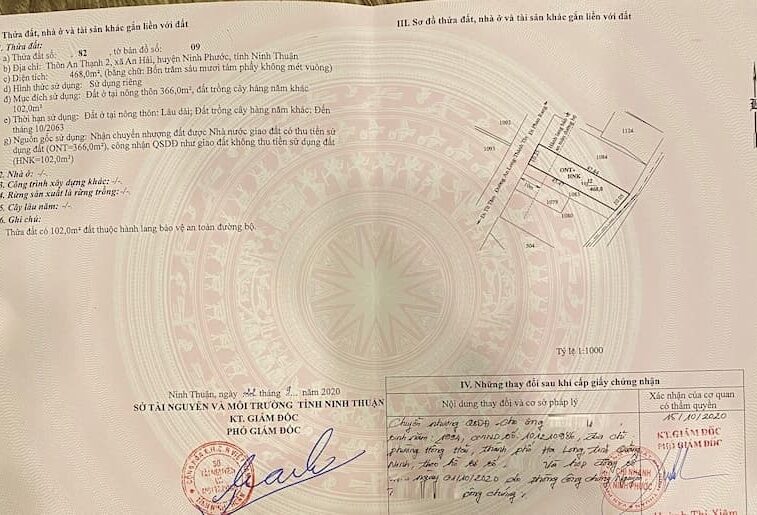 Thửa đất, nhà ở và tài sản khác gắn liền với đất
1. Thửa đất:
a) Thửa đất số: 82 tờ bản đồ số: 09
b) Địa chỉ: Thôn An Thạnh 2, xã An Hải, huyện Ninh Phước, tỉnh Ninh Thuận
c) Diện tích: 468,0m², (bằng chữ: Bốn trăm sáu mươi tám phẩy không mét vuông)
d) Hình thức sử dụng: Sử dụng riêng
đ) Mục đích sử dụng: Đất ở tại nông thôn 366,0m², đất trồng cây hàng năm khác
102,0m²
e) Thời hạn sử dụng: Đất ở tại nông thôn: Lâu dài; Đất trồng cây hàng năm khác: Đến
tháng 10/2063
g) Nguồn gốc sử dụng: Nhận chuyển nhượng đất được Nhà nước giao đất có thu tiền sử
dụng đất (ONT=366,0m²), công nhận QSDĐ như giao đất không thu tiền sử dụng đất
(HNK=102,0m²)
2. Nhà ở: -/-
3. Công trình xây dựng khác: -/-
4. Rừng sản xuất là rừng trồng: -/-
5. Cây lâu năm: -/-
6. Ghi chú:
Thửa đất có 102,0m² đất thuộc hành lang bảo vệ an toàn đường bộ.
Ninh Thuận, ngày 22 tháng 9 năm 2020
SỞ TÀI NGUYÊN VÀ MÔI TRƯỜNG TỈNH NINH THUẬN
KT. GIÁM ĐỐC
PHÓ GIÁM ĐỐC
III. Sơ đồ thửa đất, nhà ở và tài sản khác gắn liền với đất
1092
1093
1124
1084
ONT+
HNK
82
468,0
1083
1079
1080
504
Tỷ lệ 1:1000
IV. Những thay đổi sau khi cấp giấy chứng nhận
Nội dung thay đổi và cơ sở pháp lý
Xác nhận của cơ quan
có thẩm quyền
Chuyển nhượng QSDĐ cho ông
sinh năm: CMND số: địa chỉ
phường Hồng Hải, thành phố Hạ Long, tỉnh Quảng
Ninh, theo hồ sơ số. Và hợp đồng số
ngày /10/2020 phòng công chứng
công chứng
15/10/2020
KT.GIÁM ĐỐC
PHÓ GIÁM ĐỐC
CHI NHÁNH
NINH PHƯỚC